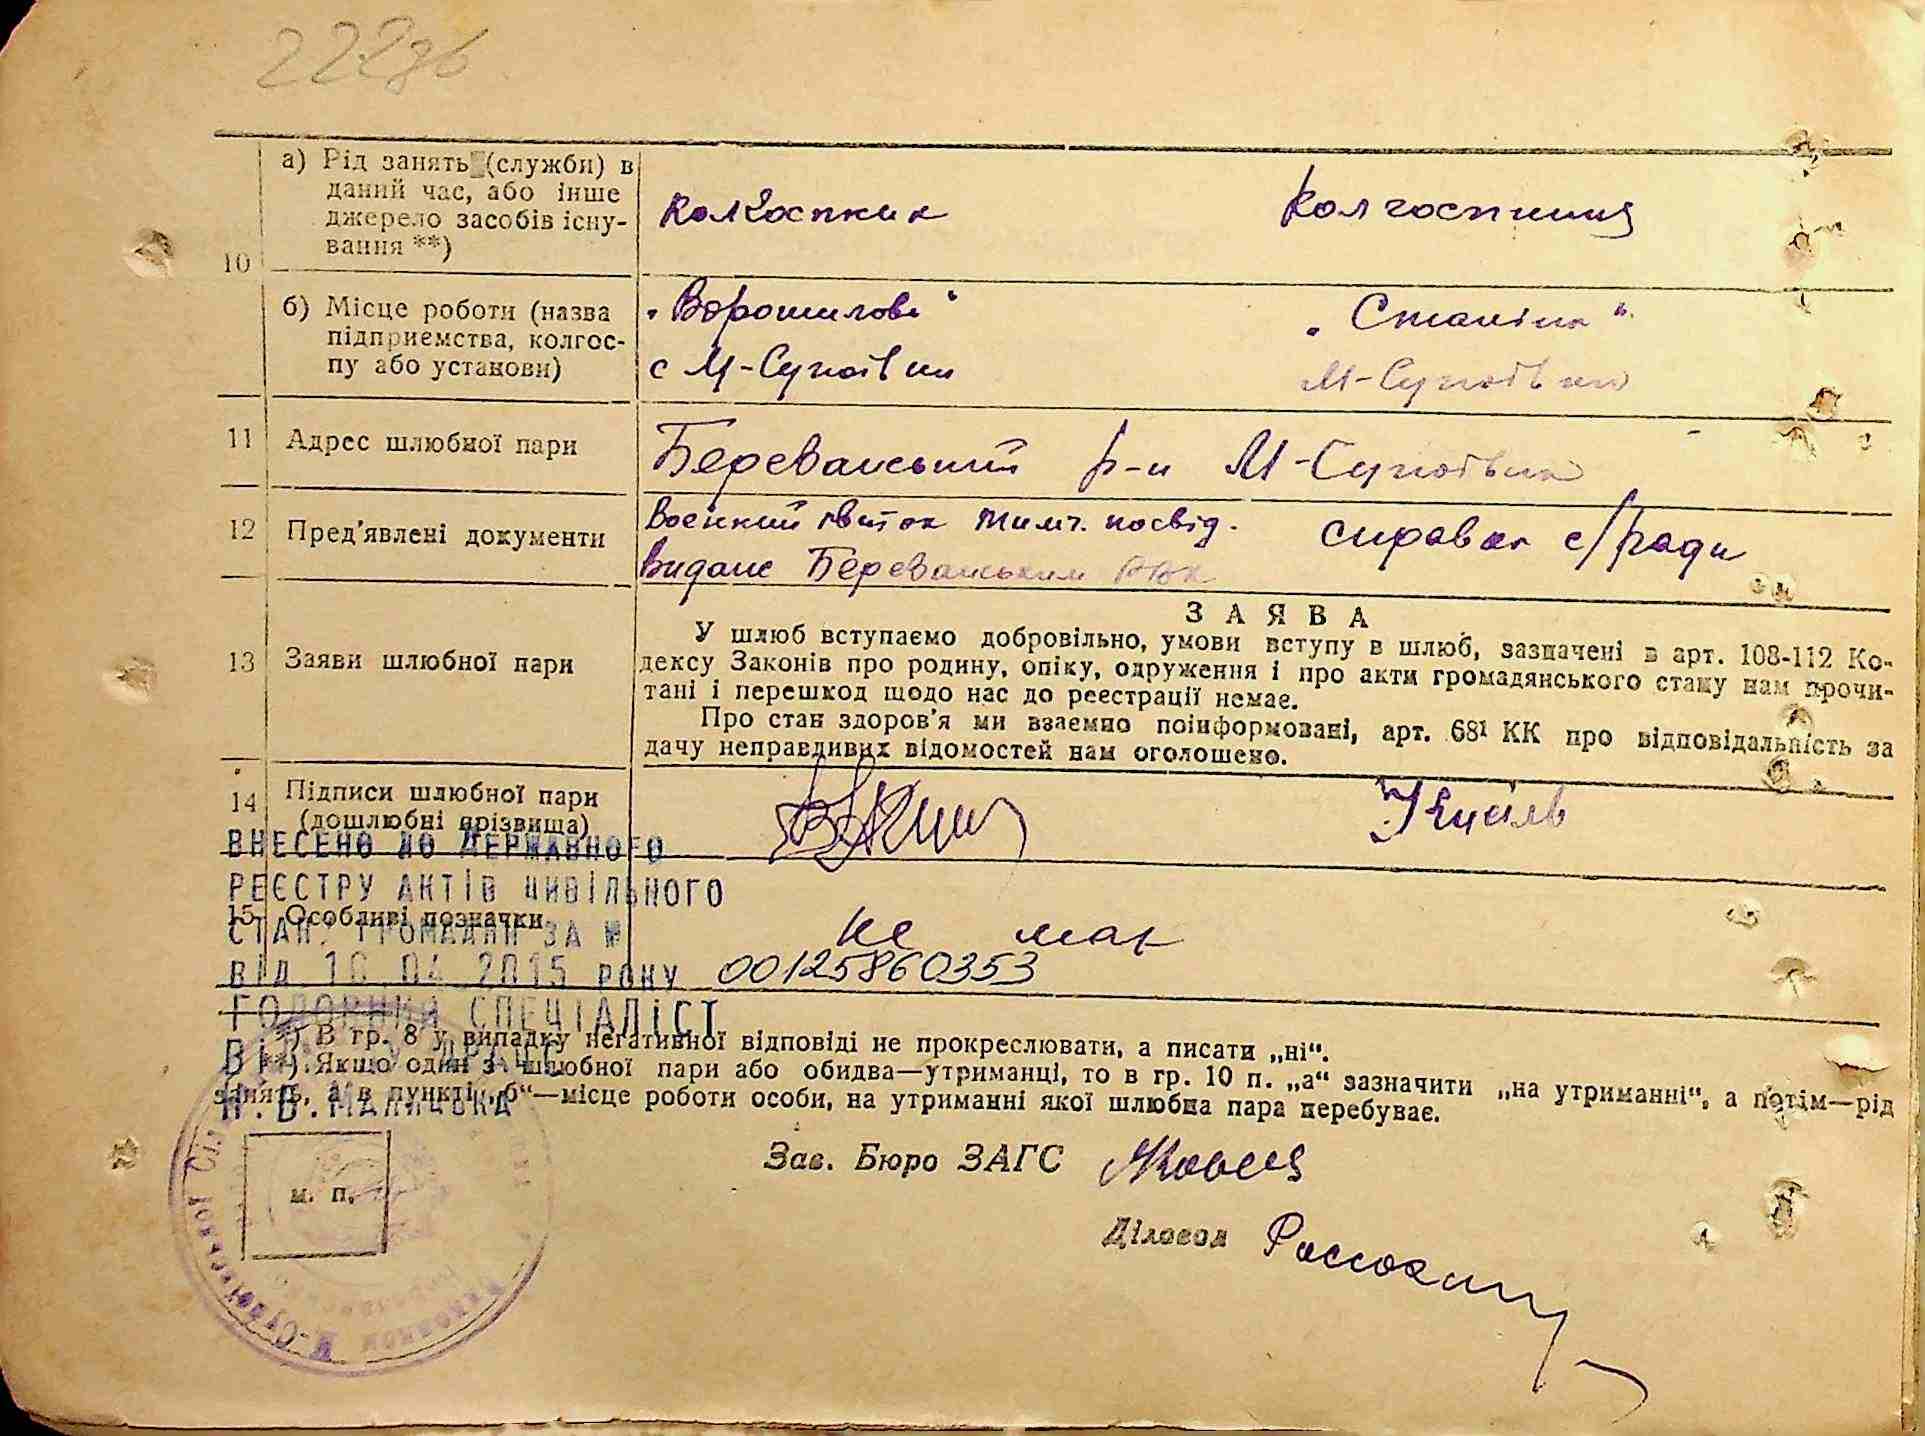 222зв
а) Рід занять (служби) в
даний час, або інше
джерело засобів існу-
вання **)
колгоспник колгоспниця
10
б) Місце роботи (назва
підприємства, колгос-
пу або установи)
„Ворошилова“ „Сталіна“
с М-Супоївка М-Супоївка
11 Адрес шлюбної пари
Березанський р-н М-Супоївка
12 Пред'явлені документи
Воєнкий квиток тимч. посвід. справка с/ради
видане Березанським РВК
13 Заяви шлюбної пари
ЗАЯВА
У шлюб вступаємо добровільно, умови вступу в шлюб, зазначені в арт. 108-112 Ко-
дексу Законів про родину, опіку, одруження і про акти громадянського стану нам прочи-
тані і перешкод щодо нас до реєстрації немає.
Про стан здоров'я ми взаємно поінформовані, арт. 68¹ КК про відповідальність за
дачу неправдивих відомостей нам оголошено.
14 Підписи шлюбної пари
(дошлюбні прізвища)
ВНЕСЕНО ДО ДЕРЖАВНОГО
РЕЄСТРУ АКТІВ ЦИВІЛЬНОГО
15 Особливі позначки
не має
СТАН. ГРОМАДЯН ЗА №
ВІД 10 04 2015 РОКУ 00125860353
ГОЛОВНИЙ СПЕЦІАЛІСТ
*) В гр. 8 у випадку негативної відповіді не прокреслювати, а писати „ні“.
**) Якщо один з шлюбної пари або обидва—утриманці, то в гр. 10 п. „а“ зазначити „на утриманні“, а потім—рід
занять, а в пункті „б“—місце роботи особи, на утриманні якої шлюбна пара перебуває.
Зав. Бюро ЗАГС
м. п.
Діловод